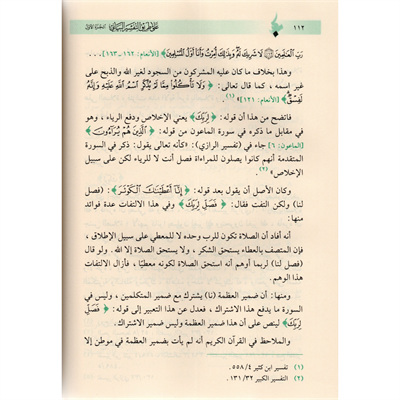 ١١٢ على طريق التفسير البياني الجزء الأول
رَبِّ الْعَالَمِينَ ۝ لَا شَرِيكَ لَهُ وَبِذَلِكَ أُمِرْتُ وَأَنَا أَوَّلُ الْمُسْلِمِينَ﴾ [الأنعام: ١٦٢ــ١٦٣]...
وهذا بخلاف ما كان عليه المشركون من السجود لغير الله والذبح على
غير اسمه، كما قال تعالى: ﴿وَلَا تَأْكُلُوا مِمَّا لَمْ يُذْكَرِ اسْمُ اللَّهِ عَلَيْهِ وَإِنَّهُ
لَفِسْقٌ﴾ [الأنعام: ١٢١]»(١).
فاتضح من هذا أن قوله: ﴿لِرَبِّكَ﴾ يعني الإخلاص ودفع الرياء، وهو
في مقابل ما ذكره في سورة الماعون من قوله: ﴿الَّذِينَ هُمْ يُرَاءُونَ﴾
[الماعون: ٦] جاء في (تفسير الرازي): «كأنه تعالى يقول: ذكر في السورة
المتقدمة أنهم كانوا يصلون للمراءاة فصل أنت لا للرياء لكن على سبيل
الإخلاص»(٢).
وكان الأصل أن يقول بعد قوله: ﴿إِنَّا أَعْطَيْنَاكَ الْكَوْثَرَ﴾: (فصل
لنا) ولكن التفت فقال: ﴿فَصَلِّ لِرَبِّكَ﴾ وفي هذا الالتفات عدة فوائد
منها:
أنه أفاد أن الصلاة تكون للرب وحده لا للمعطي على سبيل الإطلاق،
فإن المتصف بالعطاء يستحق الشكر، ولا يستحق الصلاة إلا الله. ولو قال
(فصل لنا) لربما أوهم أنه استحق الصلاة لكونه معطيًا، فأزال الالتفات
هذا الوهم.
ومنها: أن ضمير العظمة (نا) يشترك مع ضمير المتكلمين، وليس في
السورة ما يدفع هذا الاشتراك، فعدل عن هذا التعبير إلى قوله: ﴿فَصَلِّ
لِرَبِّكَ﴾ لينص على أن هذا ضمير العظمة وليس ضمير الاشتراك.
والملاحظ في القرآن الكريم أنه لم يأت بضمير العظمة في موطن إلا
(١) تفسير ابن كثير ٤/ ٥٥٨.
(٢) التفسير الكبير ٣٢/ ١٣١.